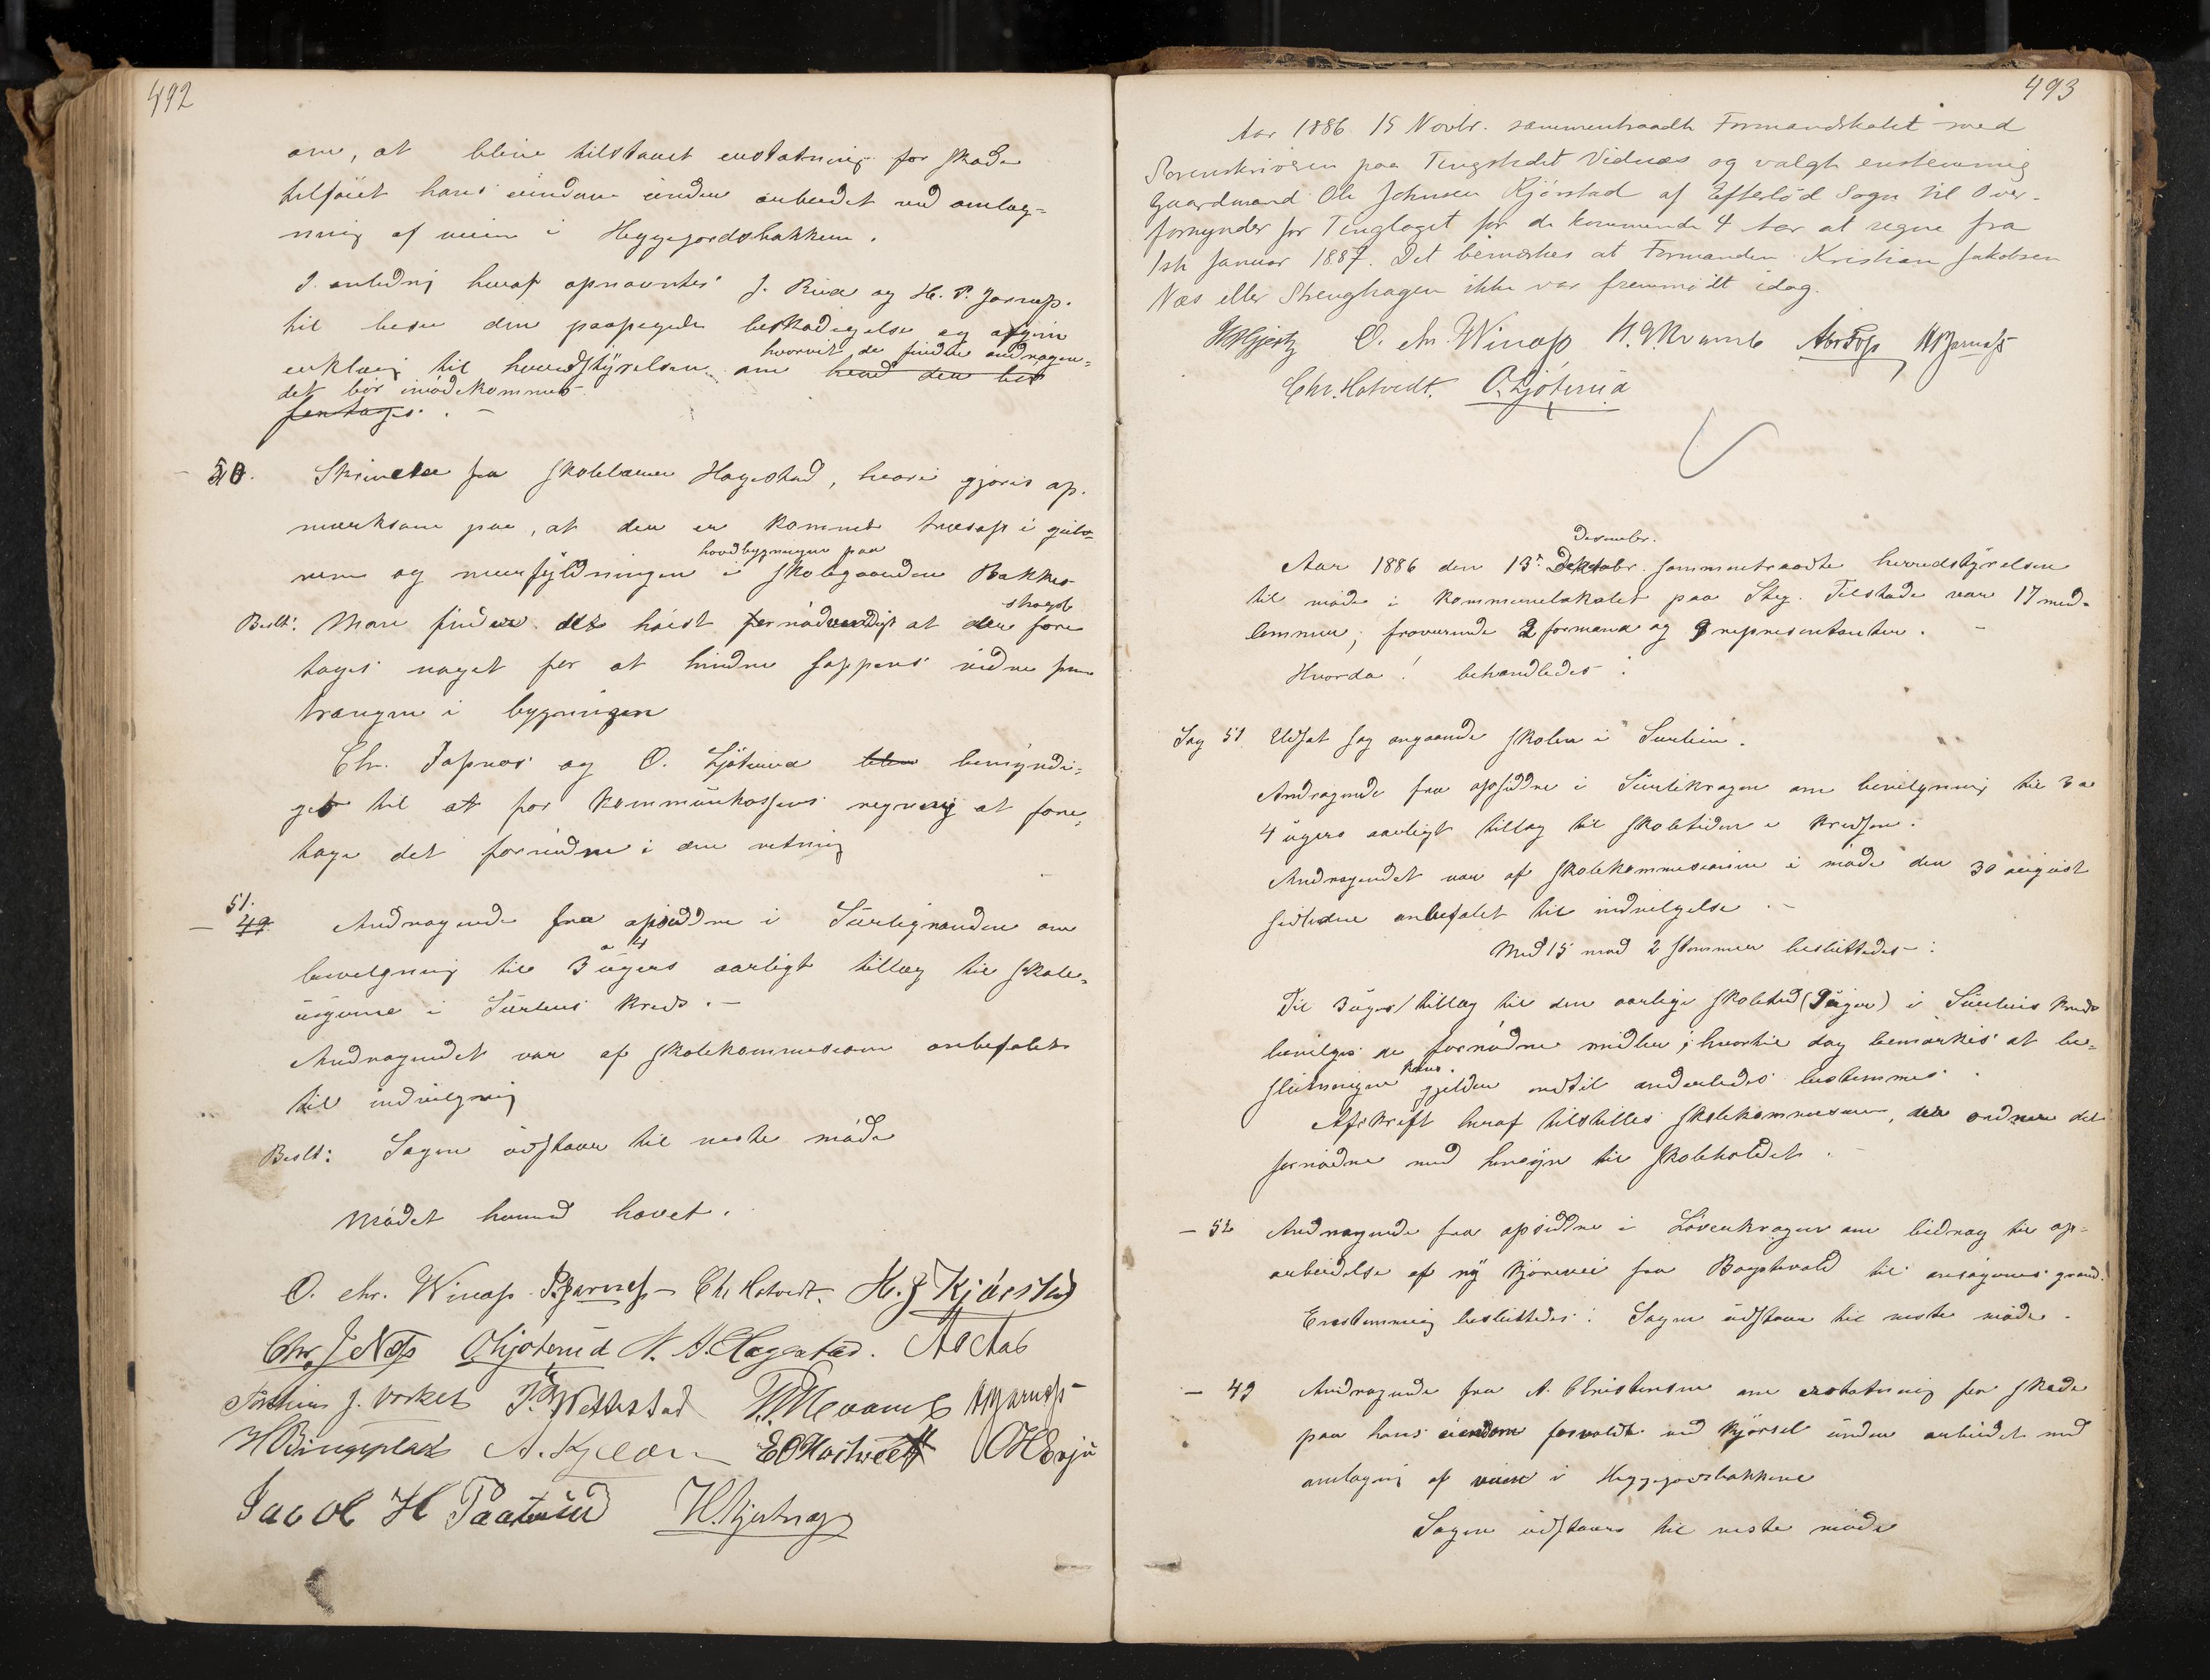 492
om, at blive tilstaaet erstatning for skade
tilføiet hans eiendom under arbeidet ved omlæg-
ning af veien i Heggegaardsbakken.
I anledning heraf opnævntes J. Riia og H. P. Jarnæs.
til bese den paapegede beskadigelse og afgive
hvorvit de findte andragen-
erklæring til herredstyrelsen om hvad der bør
det bør imødekommes
foretages. -
- 50. Skrivelse fra skolelærer Hagestad, hvori gjøres op-
mærksom paa, at der er kommet træsop i gulv-
hovedbygningen paa
rene og murfyldningen i skolegaarden Bakke
strags
Beslt: Man finder det høist fornødvendigt at der fore
tages noget for at hindre soppens videre frem
trængen i bygningen
Chr. Jassnæs og O. Ljøterud blev bemyndi-
get til at for kommunekassens regning at fore-
tage det fornødne i den retning
51.
- 49 Andragende fra opsiddere i Surligranden om
a 4
bevilgning til 3 ugers aarligt tillæg til skole-
ugerne i Surliens kreds. -
Andragendet var af skolekommissionen anbefalet
til indvilgning
Beslt: Sagen udstaar til neste møde
Mødet hermed hævet.
O. Chr. Winæss P. Jarness Chr. Hotvedt. H. J Kjørstad
Chr. J Næss O. Ljøterud N. A. Hagestad. AoAas
J. Vorket T. Wettestad
H Bingeplads A. Kjelaas E O Hostvedt OH Evju
Jacob H Paaterud H. Hjertnæs
493
Aar 1886 15 Novbr. sammentraadte Formandskabet med
Sorenskriveren paa Tingstedet Vidnæs og valgte enstemmig
Gaardmand Ole Johnsen Kjørstad af Efteløt Sogn til Over-
formynder for Tinglaget for de kommende 4 Aar at regne fra
1ste Januar 1887. Det bemærkes at Formanden Kristian Jakobsen
Næs eller Strenghagen ikke var fremmødt idag.
H Hjertnæs O. Chr. Winæss Jarness
Chr. Hotvedt. O. Ljøterud
Desember.
Aar 1886 den 13de Dektobr. sammentraadte herredstyrelsen
til møde i kommunelokalet paa Steg. Tilstede var 17 med-
lemmer, fraværende 2 formænd og 9 repræsentanter. -
Hvorda! behandledes:
Sag 51 Udsat sag angaaende skolen i Surlien.
Andragende fra opsiddere i Surlikragen om bevilgning til 3 a
4 ugers aarligt tillæg til skoletiden i kredsen.
Andragendet var af skolekommissionen i møde den 30 august
sidstleden anbefalet til indvilgelse. -
Med 15 mod 2 stemmer besluttedes:
Til 3 ugers tillæg til den aarlige skoletid (9 uger) i Surliens kreds
bevilges de fornødne midler; hvortil dog bemærkes at be-
kuns.
slutningen gjelder indtil anderledes bestemmes.
Afskrift heraf tilstilles skolekommissionen, der ordner det
fornødne med hensyn til skoleholdet. -
- 52 Andragende fra opsiddere i Løvenkragen om bidrag til op-
arbeidelse af ny kjørevei fra Bogstvald til ansøgernes grænd.
Enstemmig besluttedes: Sagen udstaar til neste møde.
- 49 Andragende fra A. Christensen om erstatning for skade
paa hans eiendom forvoldt ved kjørsel under arbeidet med
omlægning af veien i Heggegaardsbakkene
Sagen udstaaes til neste møde